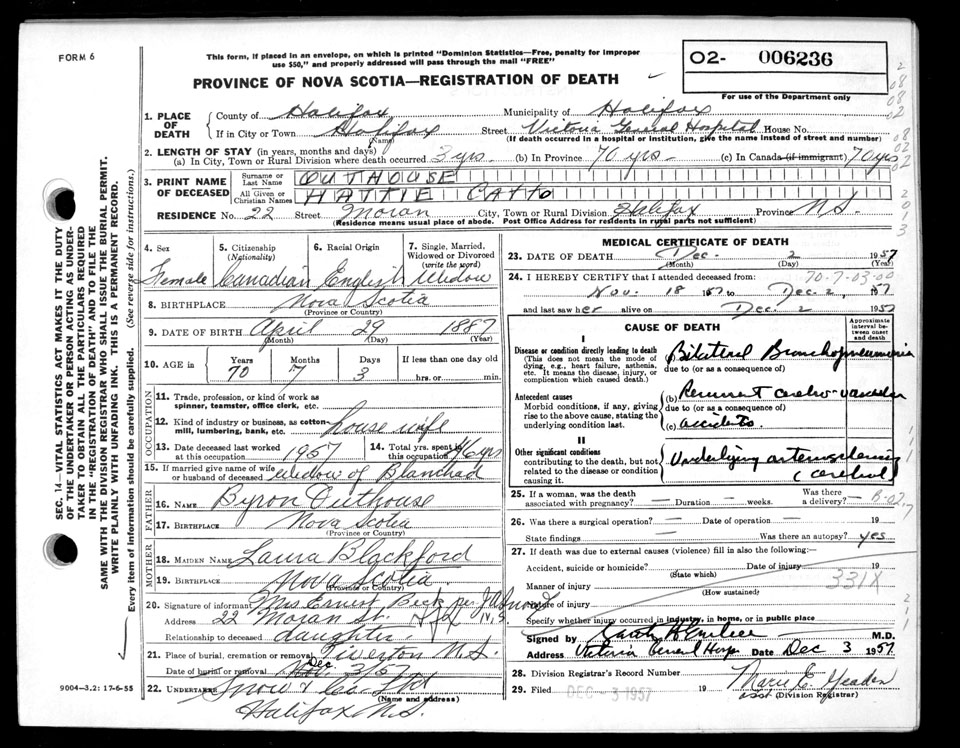 FORM 6
This form, if placed in an envelope, on which is printed "Dominion Statistics—Free, penalty for improper
use $50," and properly addressed will pass through the mail "FREE"
O2- 006236
For use of the Department only
PROVINCE OF NOVA SCOTIA—REGISTRATION OF DEATH
SEC. 14—VITAL STATISTICS ACT MAKES IT THE DUTY
OF THE UNDERTAKER OR PERSON ACTING AS UNDER-
TAKER TO OBTAIN ALL THE PARTICULARS REQUIRED
IN THE "REGISTRATION OF DEATH" AND TO FILE THE
SAME WITH THE DIVISION REGISTRAR WHO SHALL ISSUE THE BURIAL PERMIT.
WRITE PLAINLY WITH UNFADING INK. THIS IS A PERMANENT RECORD.
Every item of information should be carefully supplied. (See reverse side for instructions.)
1. PLACE OF DEATH
County of Halifax Municipality of Halifax
If in City or Town Halifax Street Victoria General Hospital House No.
(Name) (If death occurred in a hospital or institution, give the name instead of street and number)
2. LENGTH OF STAY (in years, months and days)
(a) In City, Town or Rural Division where death occurred 3 yrs. (b) In Province 70 yrs. (c) In Canada (if immigrant) 70 yrs
3. PRINT NAME OF DECEASED
Surname or Last Name OUTHOUSE
All Given or Christian Names HATTIE CATTO
RESIDENCE No. 22 Street Moran City, Town or Rural Division Halifax Province N.S.
(Residence means usual place of abode. Post Office Address for residents in rural parts not sufficient)
4. Sex Female
5. Citizenship (Nationality) Canadian
6. Racial Origin English
7. Single, Married, Widowed or Divorced (write the word) Widow
8. BIRTHPLACE Nova Scotia
(Province or Country)
9. DATE OF BIRTH April 29 1887
(Month) (Day) (Year)
10. AGE in Years 70 Months 7 Days 3 If less than one day old hrs. or min.
OCCUPATION
11. Trade, profession, or kind of work as
spinner, teamster, office clerk, etc.
12. Kind of industry or business, as cotton-
mill, lumbering, bank, etc. House wife
13. Date deceased last worked
at this occupation 1957
14. Total yrs. spent in
this occupation 46 yrs
15. If married give name of wife
or husband of deceased widow of Blanchad
FATHER
16. NAME Byron Outhouse
17. BIRTHPLACE Nova Scotia
(Province or Country)
MOTHER
18. MAIDEN NAME Laura Blackford
19. BIRTHPLACE Nova Scotia
(Province or Country)
20. Signature of informant Mrs Ernest Beck per J A Snow
Address 22 Moran St. Hfx N.S.
Relationship to deceased daughter
21. Place of burial, cremation or removal Tiverton N.S.
Date of burial or removal Dec. 3/57
22. UNDERTAKER Snow & Co Ltd
(Name and Address)
Halifax N.S.
9004—3.2: 17-6-55
MEDICAL CERTIFICATE OF DEATH
23. DATE OF DEATH Dec. 2 1957
(Month) (Day) (Year)
24. I HEREBY CERTIFY that I attended deceased from: 70-7-03-00
Nov. 18 1957 to Dec. 2, 1957
and last saw her alive on Dec. 2 1957
CAUSE OF DEATH
Approximate interval between onset and death
I
Disease or condition directly leading to death
(This does not mean the mode of
dying, e.g., heart failure, asthenia,
etc. It means the disease, injury, or
complication which caused death.)
Bilateral Bronchopneumonia
due to (or as a consequence of)
Antecedent causes
Morbid conditions, if any, giving
rise to the above cause, stating the
underlying condition last.
(b) Recurrent cerebro-vascular
due to (or as a consequence of)
(c) accidents
II
Other significant conditions
contributing to the death, but not
related to the disease or condition
causing it.
Underlying arteriosclerosis
(cerebral)
25. If a woman, was the death
associated with pregnancy? — Duration — weeks. Was there
a delivery? — B-02
26. Was there a surgical operation? — Date of operation — 19
State findings — Was there an autopsy? yes
27. If death was due to external causes (violence) fill in also the following:
Accident, suicide or homicide? Date of injury 19
(State which)
331X
Manner of injury
(How sustained)
Nature of injury
Specify whether injury occurred in industry, in home, or in public place
Signed by M.D.
Address Victoria General Hosp Date Dec 3 1957
28. Division Registrar's Record Number
29. Filed DEC - 3 1957 19
Marie E. Geaden
Asst (Division Registrar)